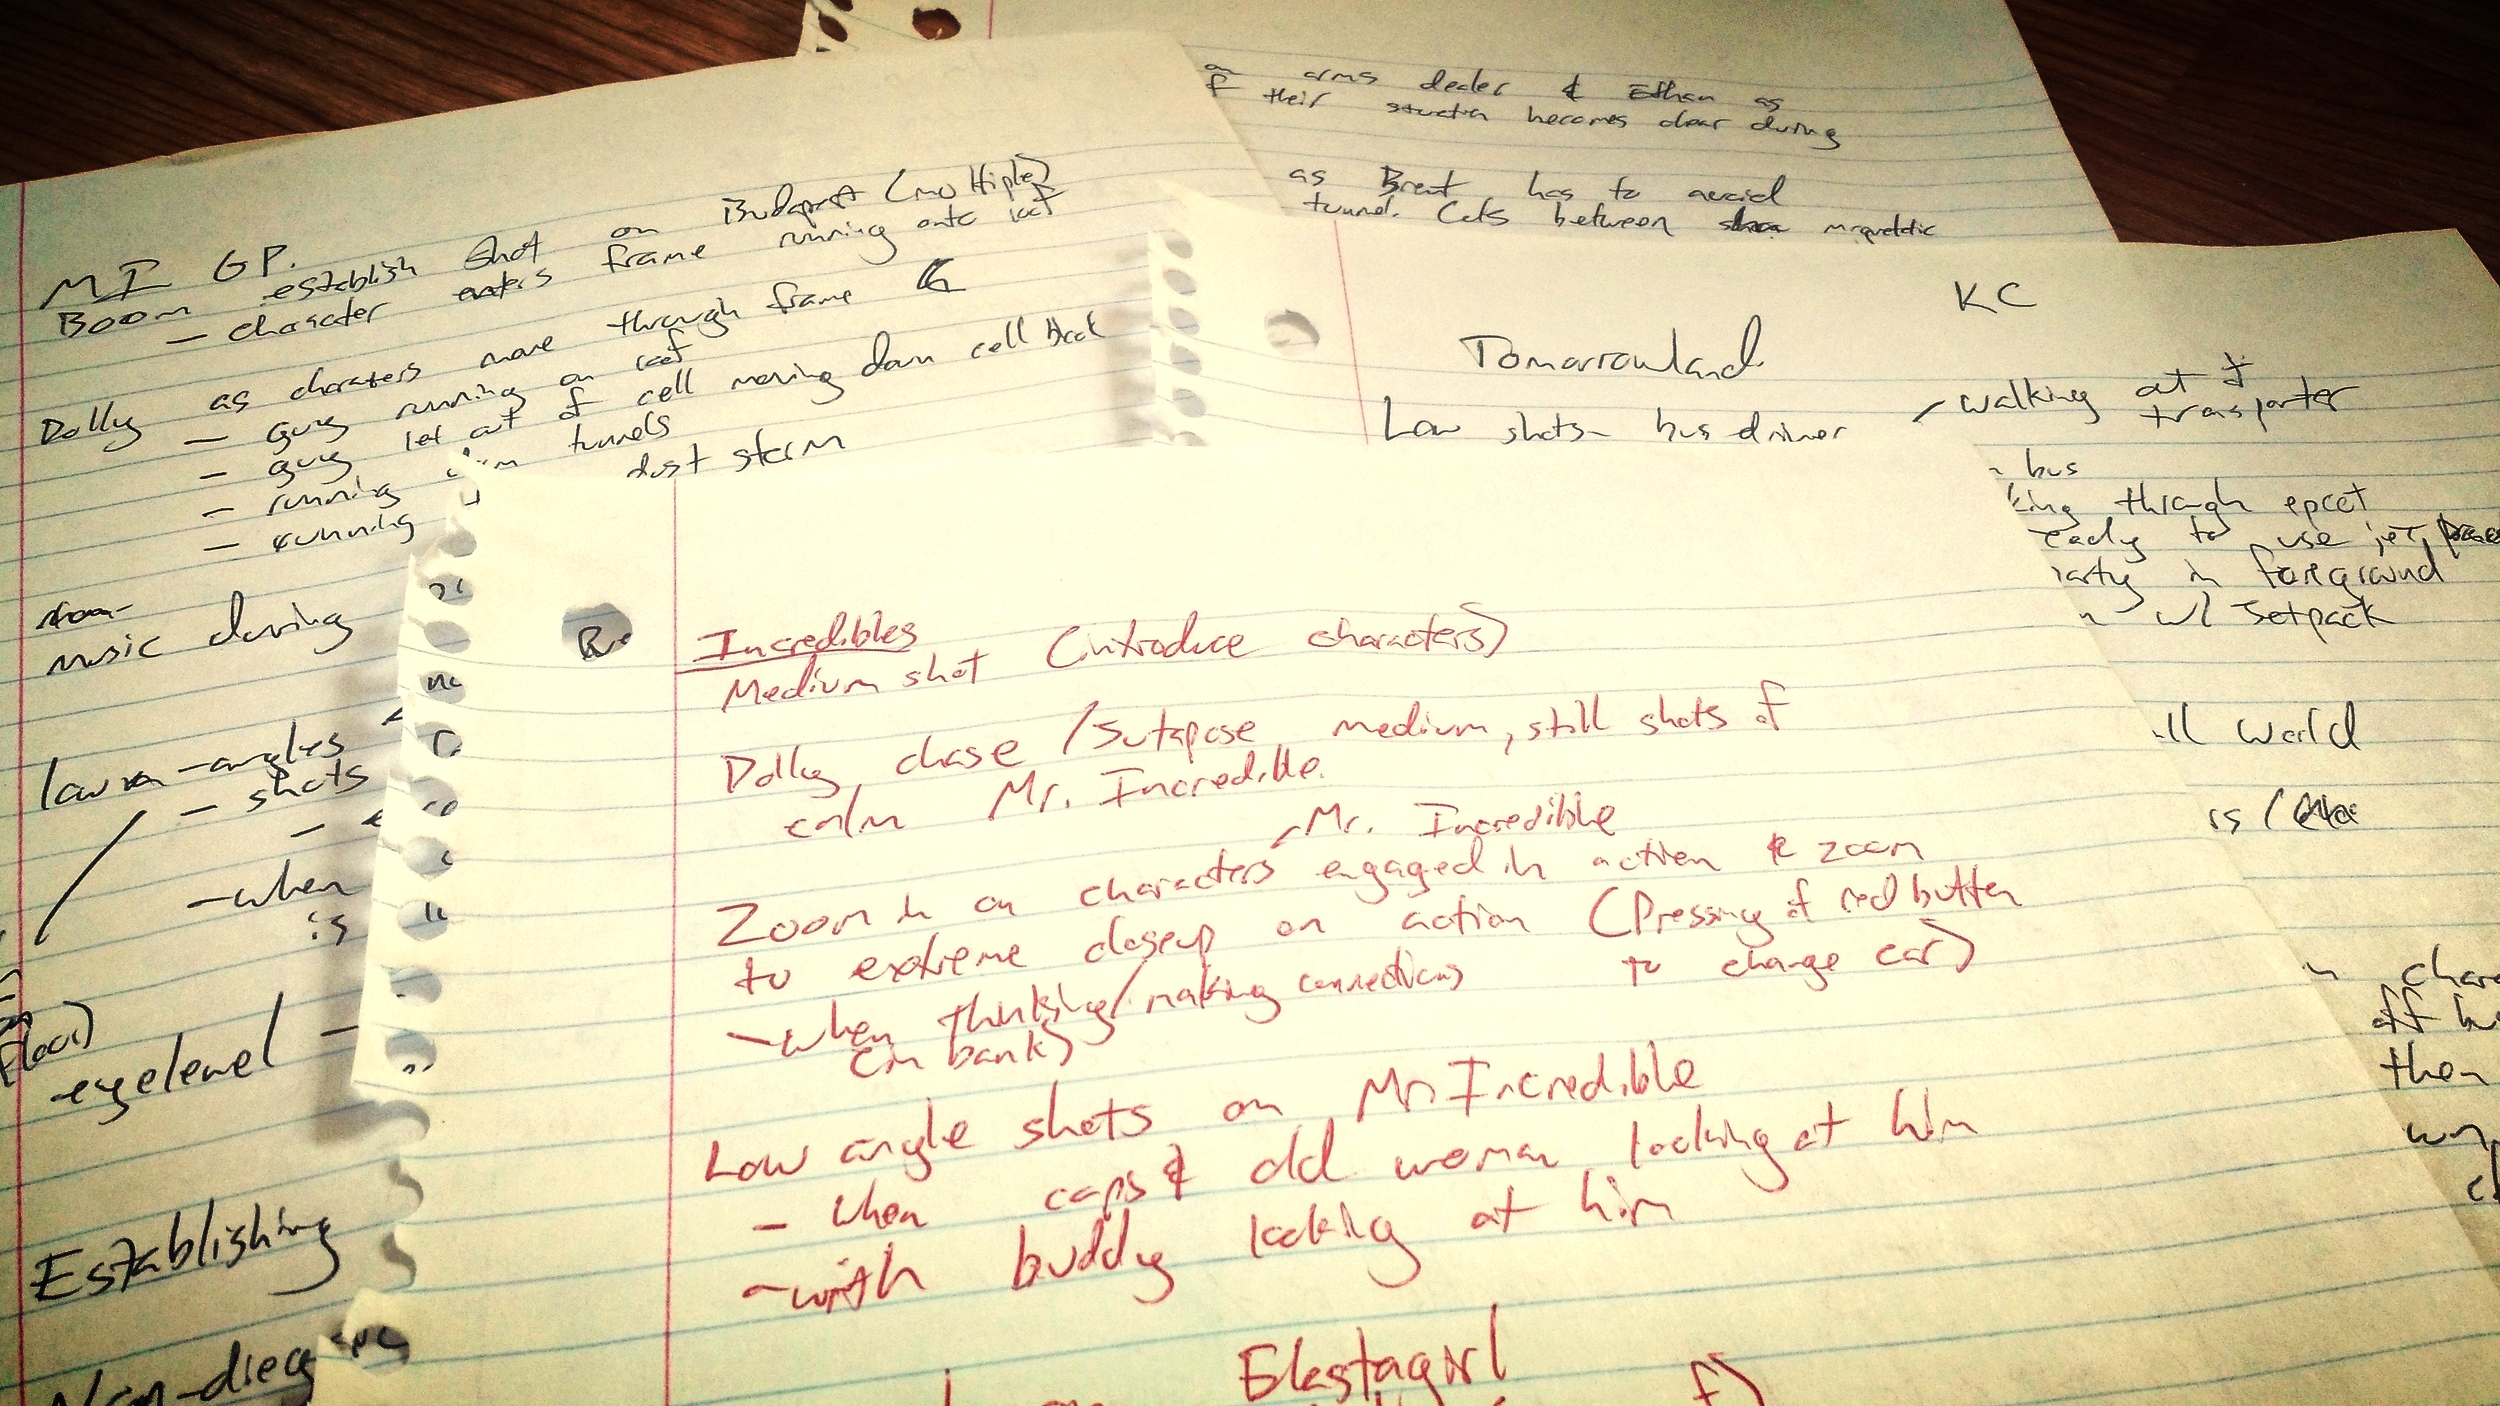 on arms dealer & Ethan as
f their becomes clear during
as Brent has to avoid
tunnel. Cuts between magnetic
MI GP.
Boom establish shot on Budapest (multiple)
- character enters frame running onto roof
Dolly as characters move through frame
- guy running on roof
- guy let out of cell moving down cell block
- running down tunnels
- running dust storm
music during
low angles
- shots
- when
is
floor)
- eyelevel -
Establishing
Non-dieg
KC
Tomorrowland
Low shots - bus driver - walking at
transporter
bus
king through epcot
ready to use jet pack
party in foreground
n w/ Jetpack
ll world
rs /
n char
off bu
then
Incredibles
Medium shot (introduce characters)
Dolly chase / Jutapose medium, still shots of
calm Mr. Incredible.
- Mr. Incredible
Zoom in on characters engaged in action & zoom
to extreme closeup on action (Pressing of red button
to change car)
- when thinking/making connections
(in bank)
Low angle shots on Mr Incredible
- when caps & old woman looking at him
- with buddy looking at him
Elastagirl